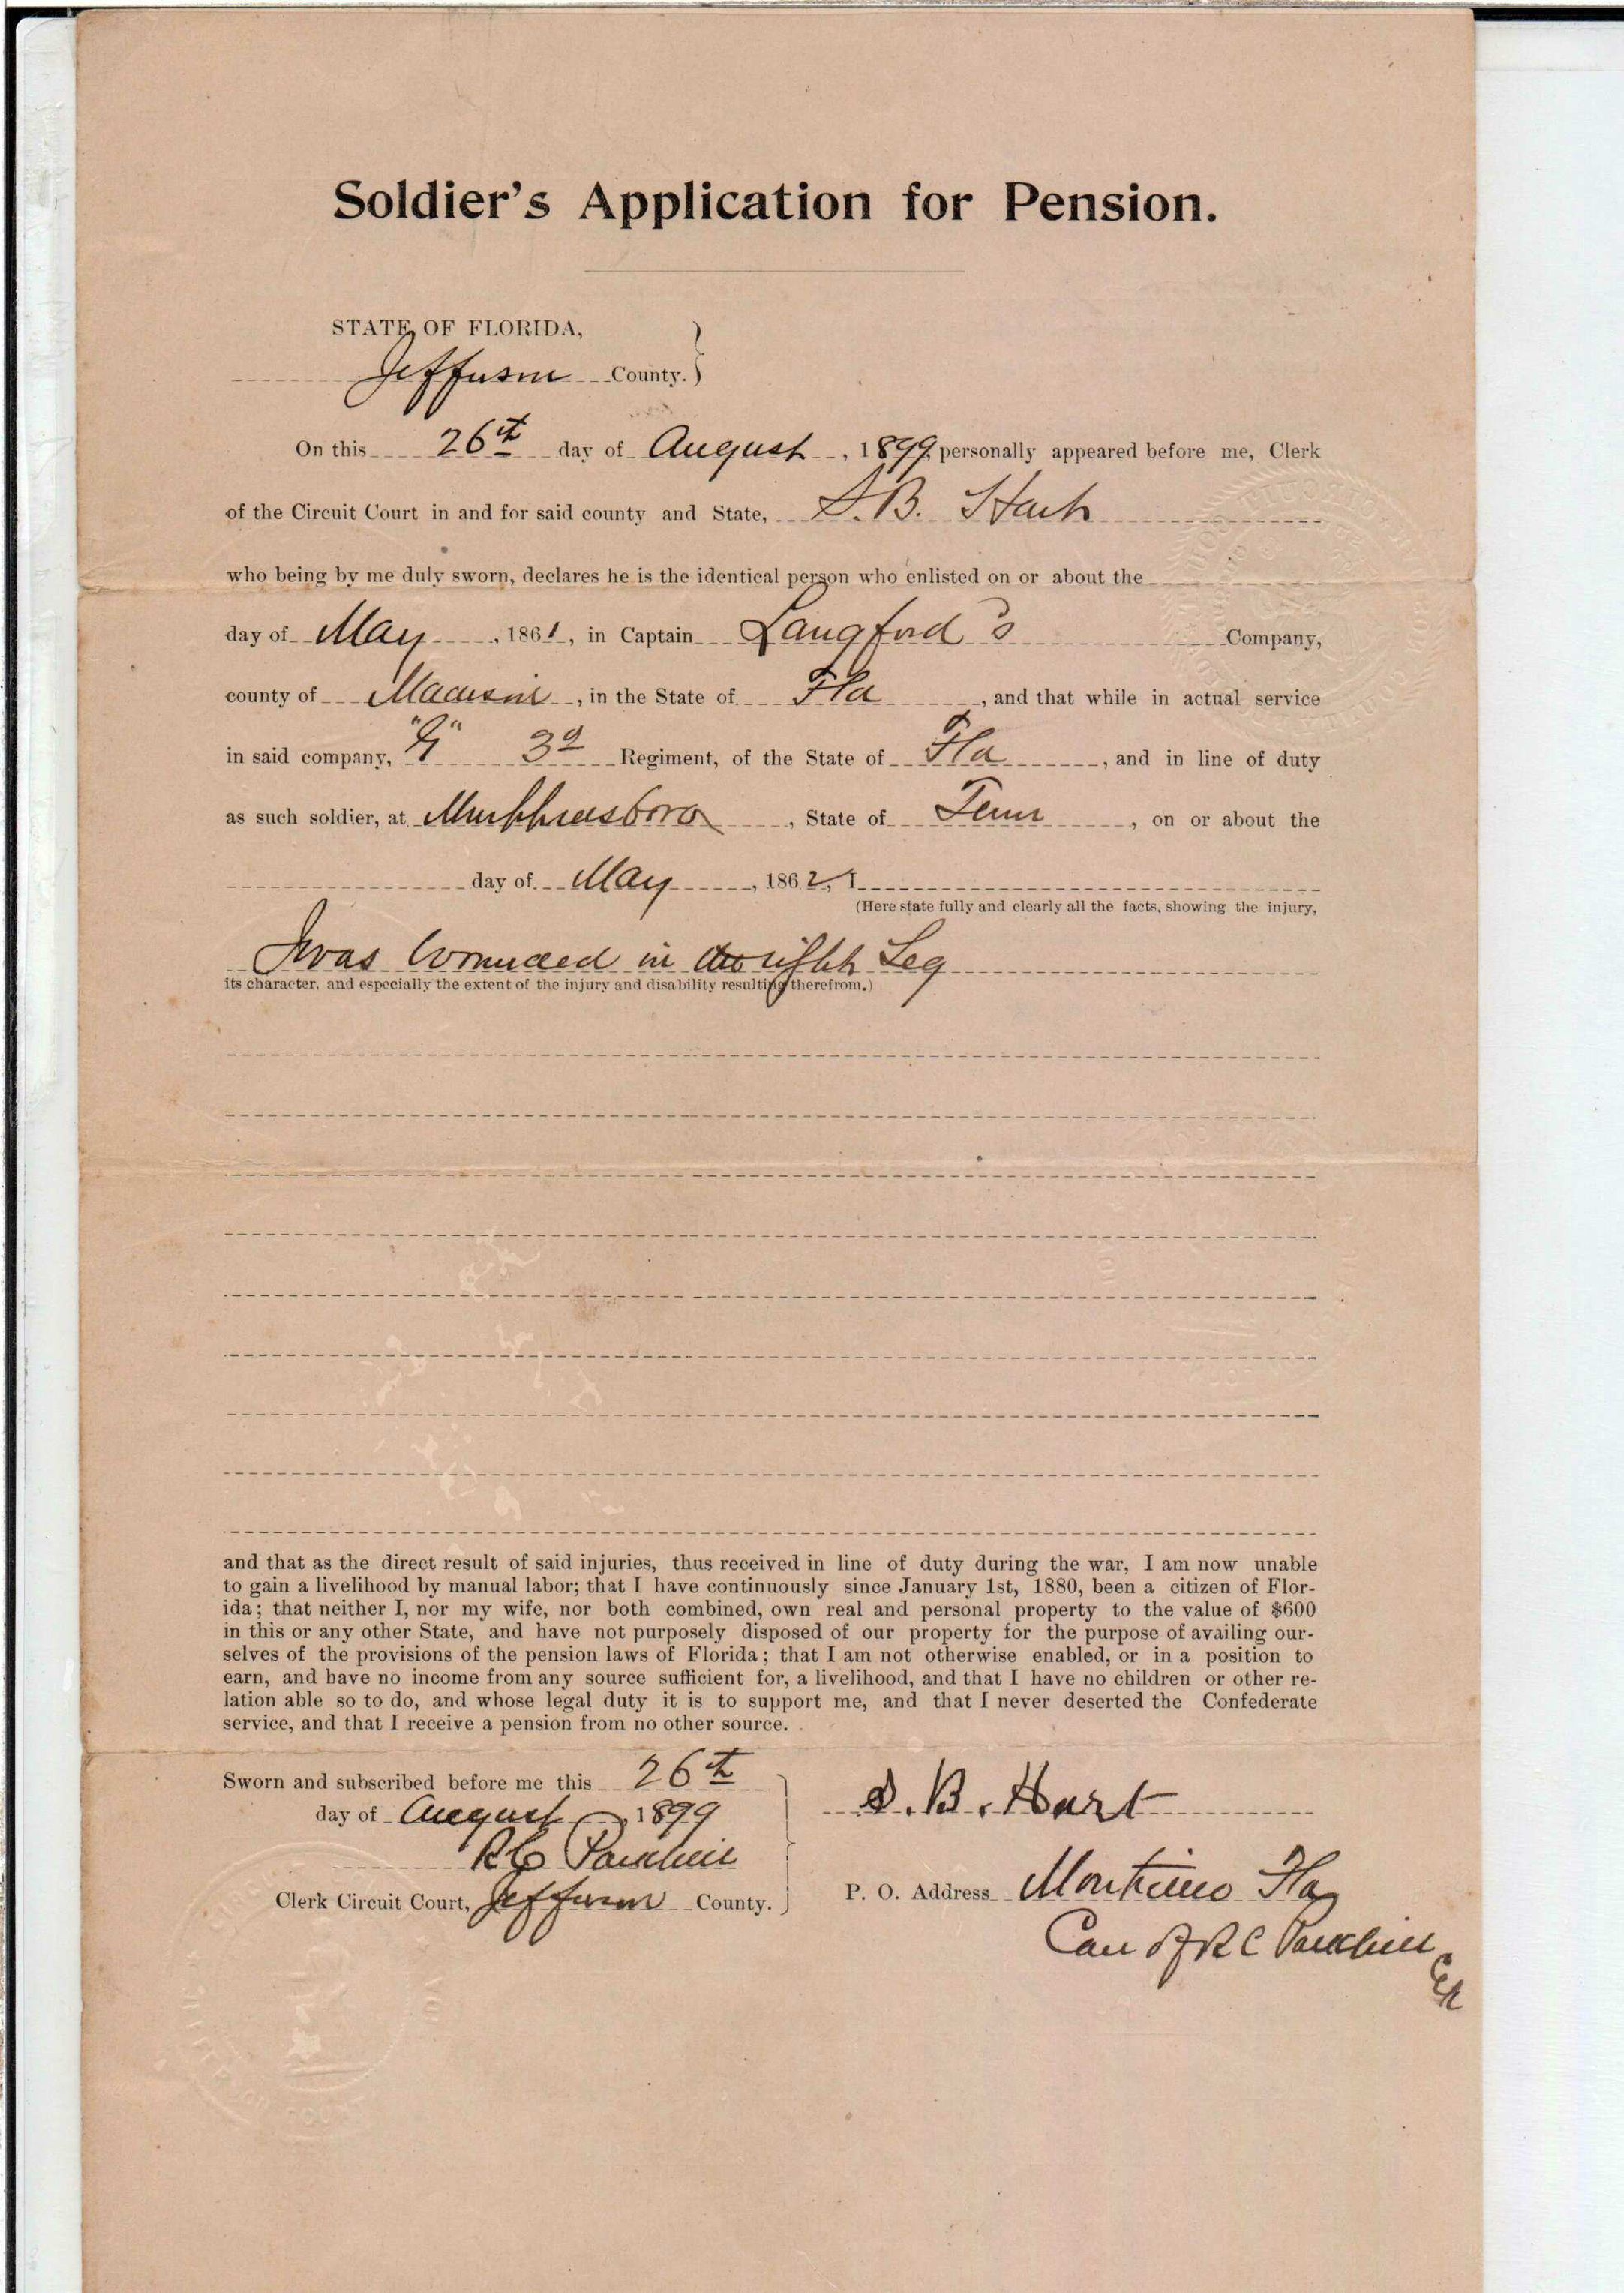 Soldier's Application for Pension.
STATE OF FLORIDA,
Jefferson County.
On this 26th day of August, 1899, personally appeared before me, Clerk
of the Circuit Court in and for said county and State, S.B. Hart
who being by me duly sworn, declares he is the identical person who enlisted on or about the
day of May, 1861, in Captain Langford's Company,
county of Madison, in the State of Fla, and that while in actual service
in said company, "G" 3d Regiment, of the State of Fla, and in line of duty
as such soldier, at Murphreesboro, State of Tenn, on or about the
day of May, 1862, I
(Here state fully and clearly all the facts, showing the injury,
I was wounded in the right Leg
its character, and especially the extent of the injury and disability resulting therefrom.)
and that as the direct result of said injuries, thus received in line of duty during the war, I am now unable
to gain a livelihood by manual labor; that I have continuously since January 1st, 1880, been a citizen of Flor-
ida; that neither I, nor my wife, nor both combined, own real and personal property to the value of $600
in this or any other State, and have not purposely disposed of our property for the purpose of availing our-
selves of the provisions of the pension laws of Florida; that I am not otherwise enabled, or in a position to
earn, and have no income from any source sufficient for, a livelihood, and that I have no children or other re-
lation able so to do, and whose legal duty it is to support me, and that I never deserted the Confederate
service, and that I receive a pension from no other source.
Sworn and subscribed before me this 26th
day of August, 1899
R C Parkhill
Clerk Circuit Court, Jefferson County.
S. B. Hart
P. O. Address Monticello Fla
Care of R C Parkhill
Clk